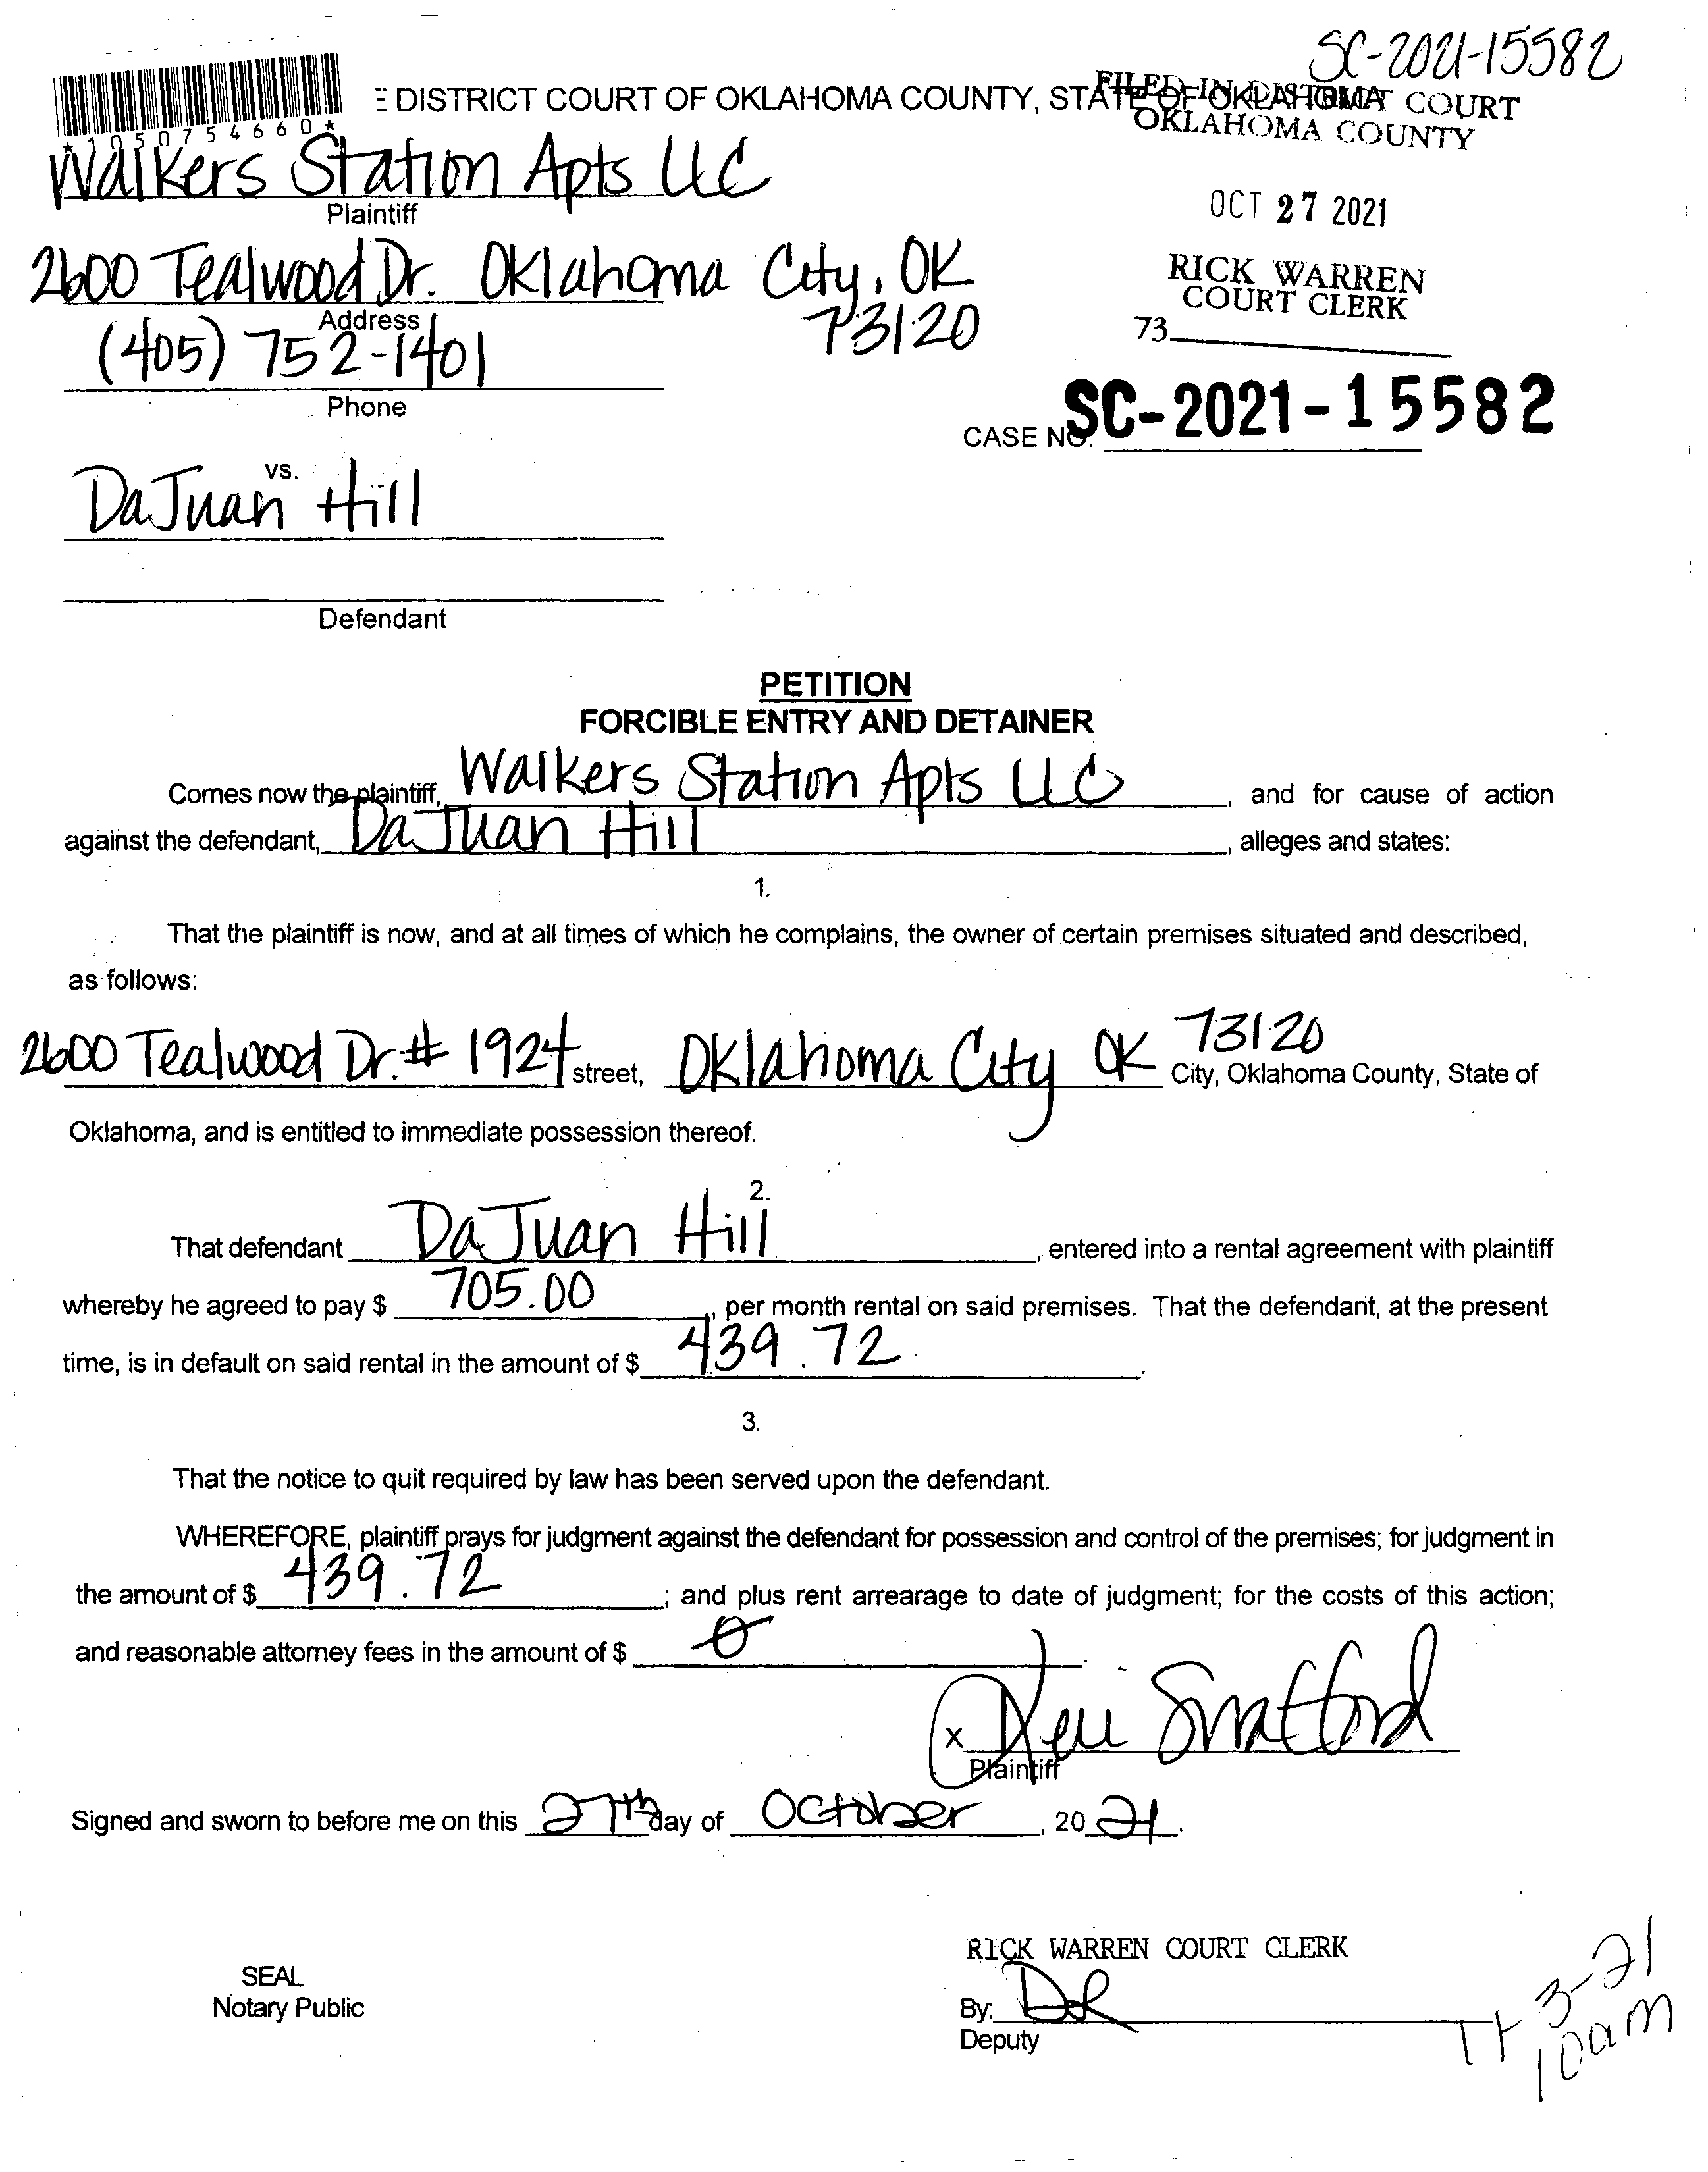 SC-2021-15582
E DISTRICT COURT OF OKLAHOMA COUNTY, STATE OF OKLAHOMA
FILED IN DISTRICT COURT
OKLAHOMA COUNTY
*1050754660*
Walkers Station Apts LLC
Plaintiff
OCT 27 2021
2600 Tealwood Dr. Oklahoma City, OK
73120
Address
RICK WARREN
COURT CLERK
73
(405) 752-1401
Phone
CASE NO. SC-2021-15582
vs.
DaJuan Hill
Defendant
PETITION
FORCIBLE ENTRY AND DETAINER
Comes now the plaintiff, Walkers Station Apts LLC, and for cause of action
against the defendant, DaJuan Hill, alleges and states:
1.
That the plaintiff is now, and at all times of which he complains, the owner of certain premises situated and described,
as follows:
2600 Tealwood Dr. # 1924 street, Oklahoma City OK 73120 City, Oklahoma County, State of
Oklahoma, and is entitled to immediate possession thereof.
2.
That defendant DaJuan Hill, entered into a rental agreement with plaintiff
whereby he agreed to pay $ 705.00, per month rental on said premises. That the defendant, at the present
time, is in default on said rental in the amount of $ 439.72.
3.
That the notice to quit required by law has been served upon the defendant.
WHEREFORE, plaintiff prays for judgment against the defendant for possession and control of the premises; for judgment in
the amount of $ 439.72; and plus rent arrearage to date of judgment; for the costs of this action;
and reasonable attorney fees in the amount of $ 0.
x
Plaintiff
Signed and sworn to before me on this 27th day of October, 2021.
RICK WARREN COURT CLERK
SEAL
Notary Public
By: DR
Deputy
11-3-21
10am